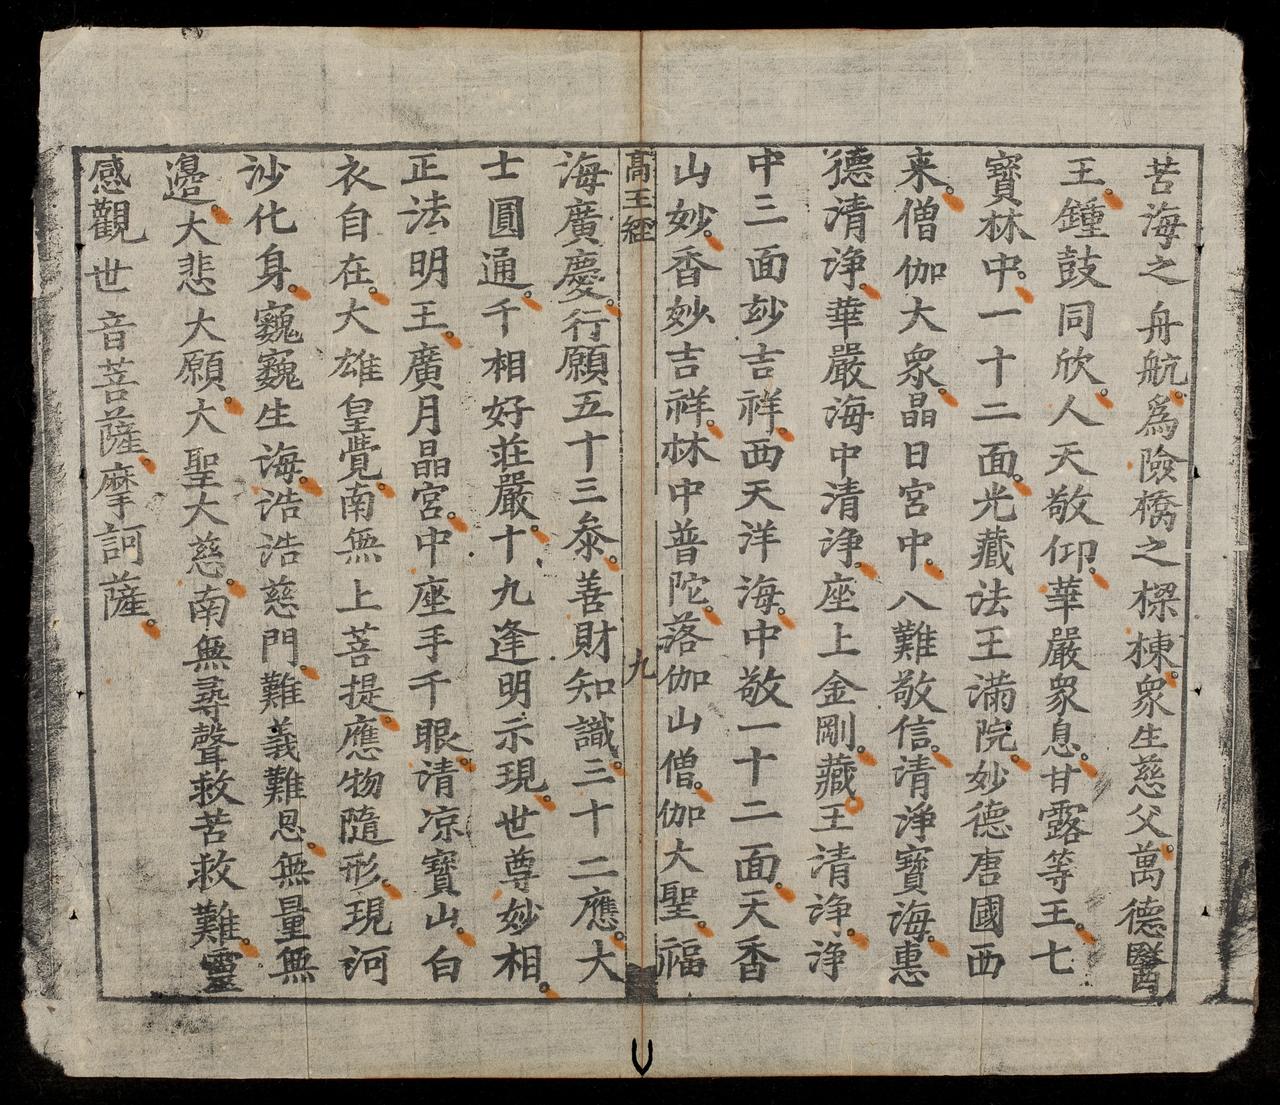 苦海之舟航。爲險橋之樑棟。衆生慈父。萬德醫
王。鐘鼓同欣。人天敬仰。華嚴衆息。甘露等王。七
寶林中。一十二面。光藏法王滿院。妙德唐國西
来。僧伽大衆。晶日宮中。八難敬信。清淨寶海。惠
德清淨。華嚴海中清淨。座上金剛。藏王清淨。淨
中三面玅吉祥。西天洋海。中敬一十二面。天香
山妙。香妙吉祥。林中普陀。落伽山僧。伽大聖。福
高王經
九
海廣慶。行願五十三叅。善財知識。三十二應。大
士圓通。千相好莊嚴。十九逢明示現。世尊妙相。
正法明王。廣月晶宮。中座手千眼。清凉寶山。白
衣自在。大雄皇覺。南無上菩提。應物隨形。現河
沙化身。巍巍生海。浩浩慈門。難義難思。無量無
邊。大悲大願。大聖大慈。南無尋聲救苦救難。靈
感觀世音菩薩。摩訶薩。